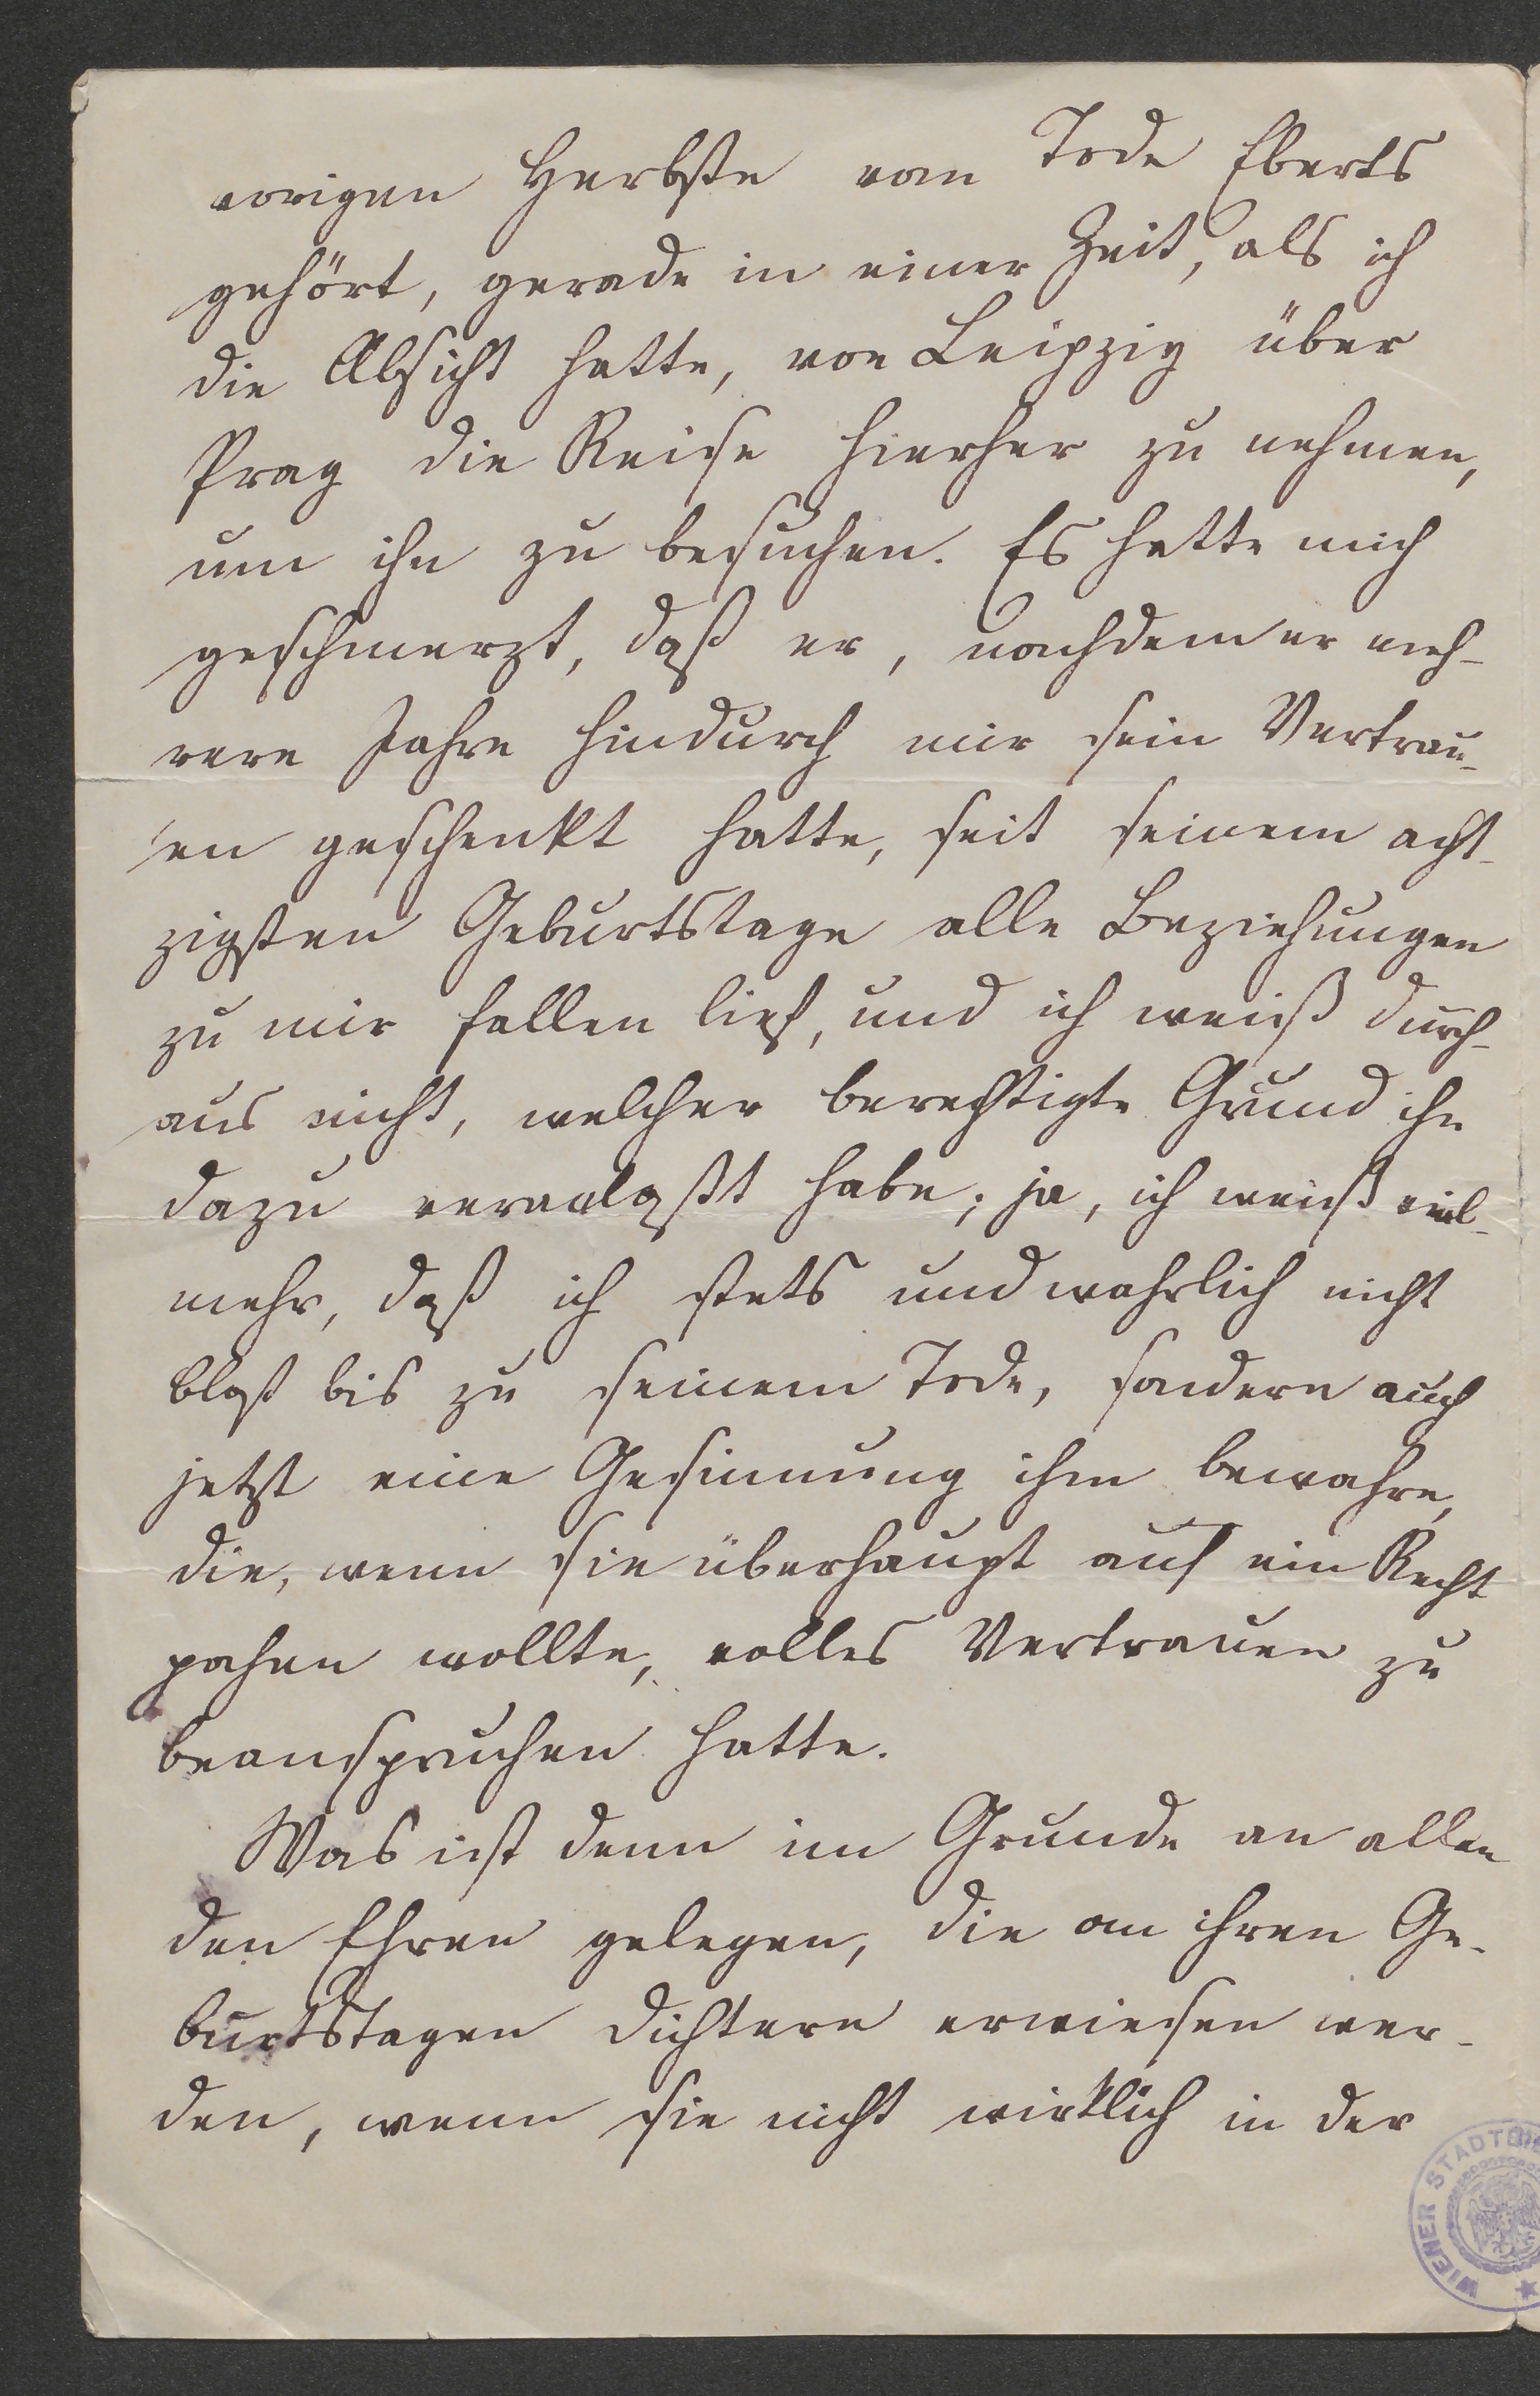 vorigen Herbste vom Tode Eberts
gehört, gerade in einer Zeit, als ich
die Absicht hatte, von Leipzig über
Prag die Reise hierher zu nehmen,
um ihn zu besuchen. Es hatte mich
geschmerzt, daß er, nachdem er meh-
rere Jahre hindurch mir sein Vertrau-
en geschenkt hatte, seit seinem acht-
zigsten Geburtstage alle Beziehungen
zu mir fallen ließ, und ich weiß durch-
aus nicht, welcher berechtigte Grund ihn
dazu veranlaßt habe; ja, ich weiß viel-
mehr, daß ich stets und wahrlich nicht
bloß bis zu seinem Tode, sondern auch
jetzt eine Gesinnung ihm bewahre,
die, wenn sie überhaupt auf ein Recht
pochen wollte, volles Vertrauen zu
beanspruchen hatte.
Was ist denn im Grunde an allen
den Ehren gelegen, die an ihren Ge-
burtstagen Dichtern erwiesen wer-
den, wenn sie nicht wirklich in der
WIENER STADTBI